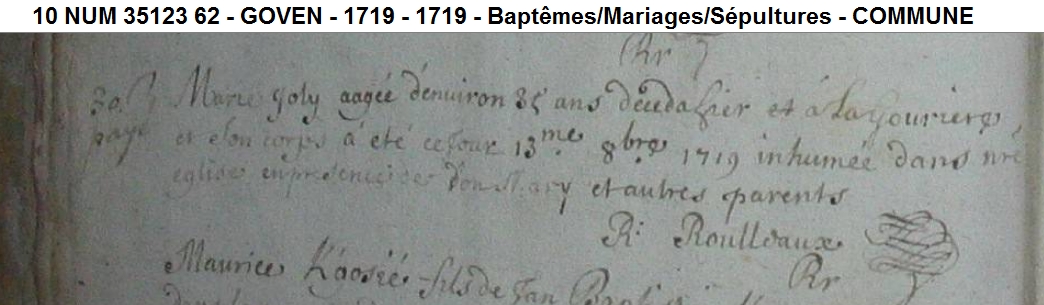 10 NUM 35123 62 - GOVEN - 1719 - 1719 - Baptêmes/Mariages/Sépultures - COMMUNE
Rr
30 s Marie Joly aagée d'environ 35 ans déceda hier et á la
payé et son corps á été ce jour 13me. 8bre 1719 inhumée dans nre
eglise en presence de son Mary et autres parents
R. Roulleaux
Maurice fils de Jan
Rr